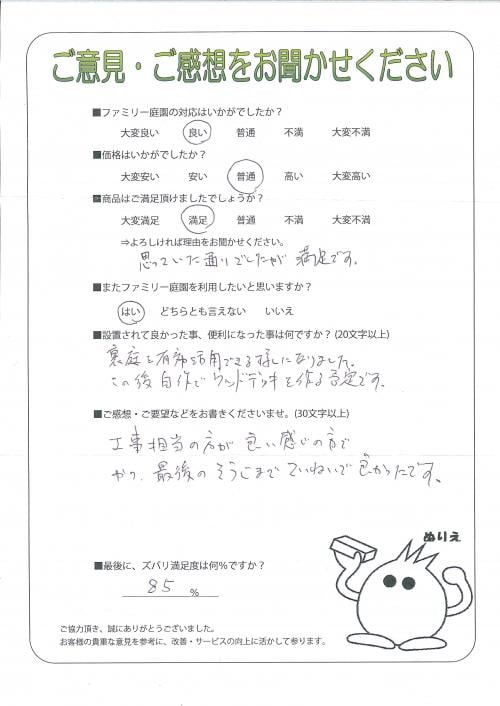 ご意見・ご感想をお聞かせください
■ファミリー庭園の対応はいかがでしたか？
大変良い 良い 普通 不満 大変不満
■価格はいかがでしたか？
大変安い 安い 普通 高い 大変高い
■商品はご満足頂けましたでしょうか？
大変満足 満足 普通 不満 大変不満
⇒よろしければ理由をお聞かせください。
思っていた通りでしたが 満足です。
■またファミリー庭園を利用したいと思いますか？
はい どちらとも言えない いいえ
■設置されて良かった事、便利になった事は何ですか？(20文字以上)
裏庭を有効活用できる様になりました。
この後自作でウッドデッキを作る予定です。
■ご感想・ご要望などをお書きくださいませ。(30文字以上)
工事担当の方が良い感じの方で
最後のそうじまでていねいで良かったです。
ぬりえ
■最後に、ズバリ満足度は何％ですか？
85 ％
ご協力頂き、誠にありがとうございました。
お客様の貴重な意見を参考に、改善・サービスの向上に活かして参ります。